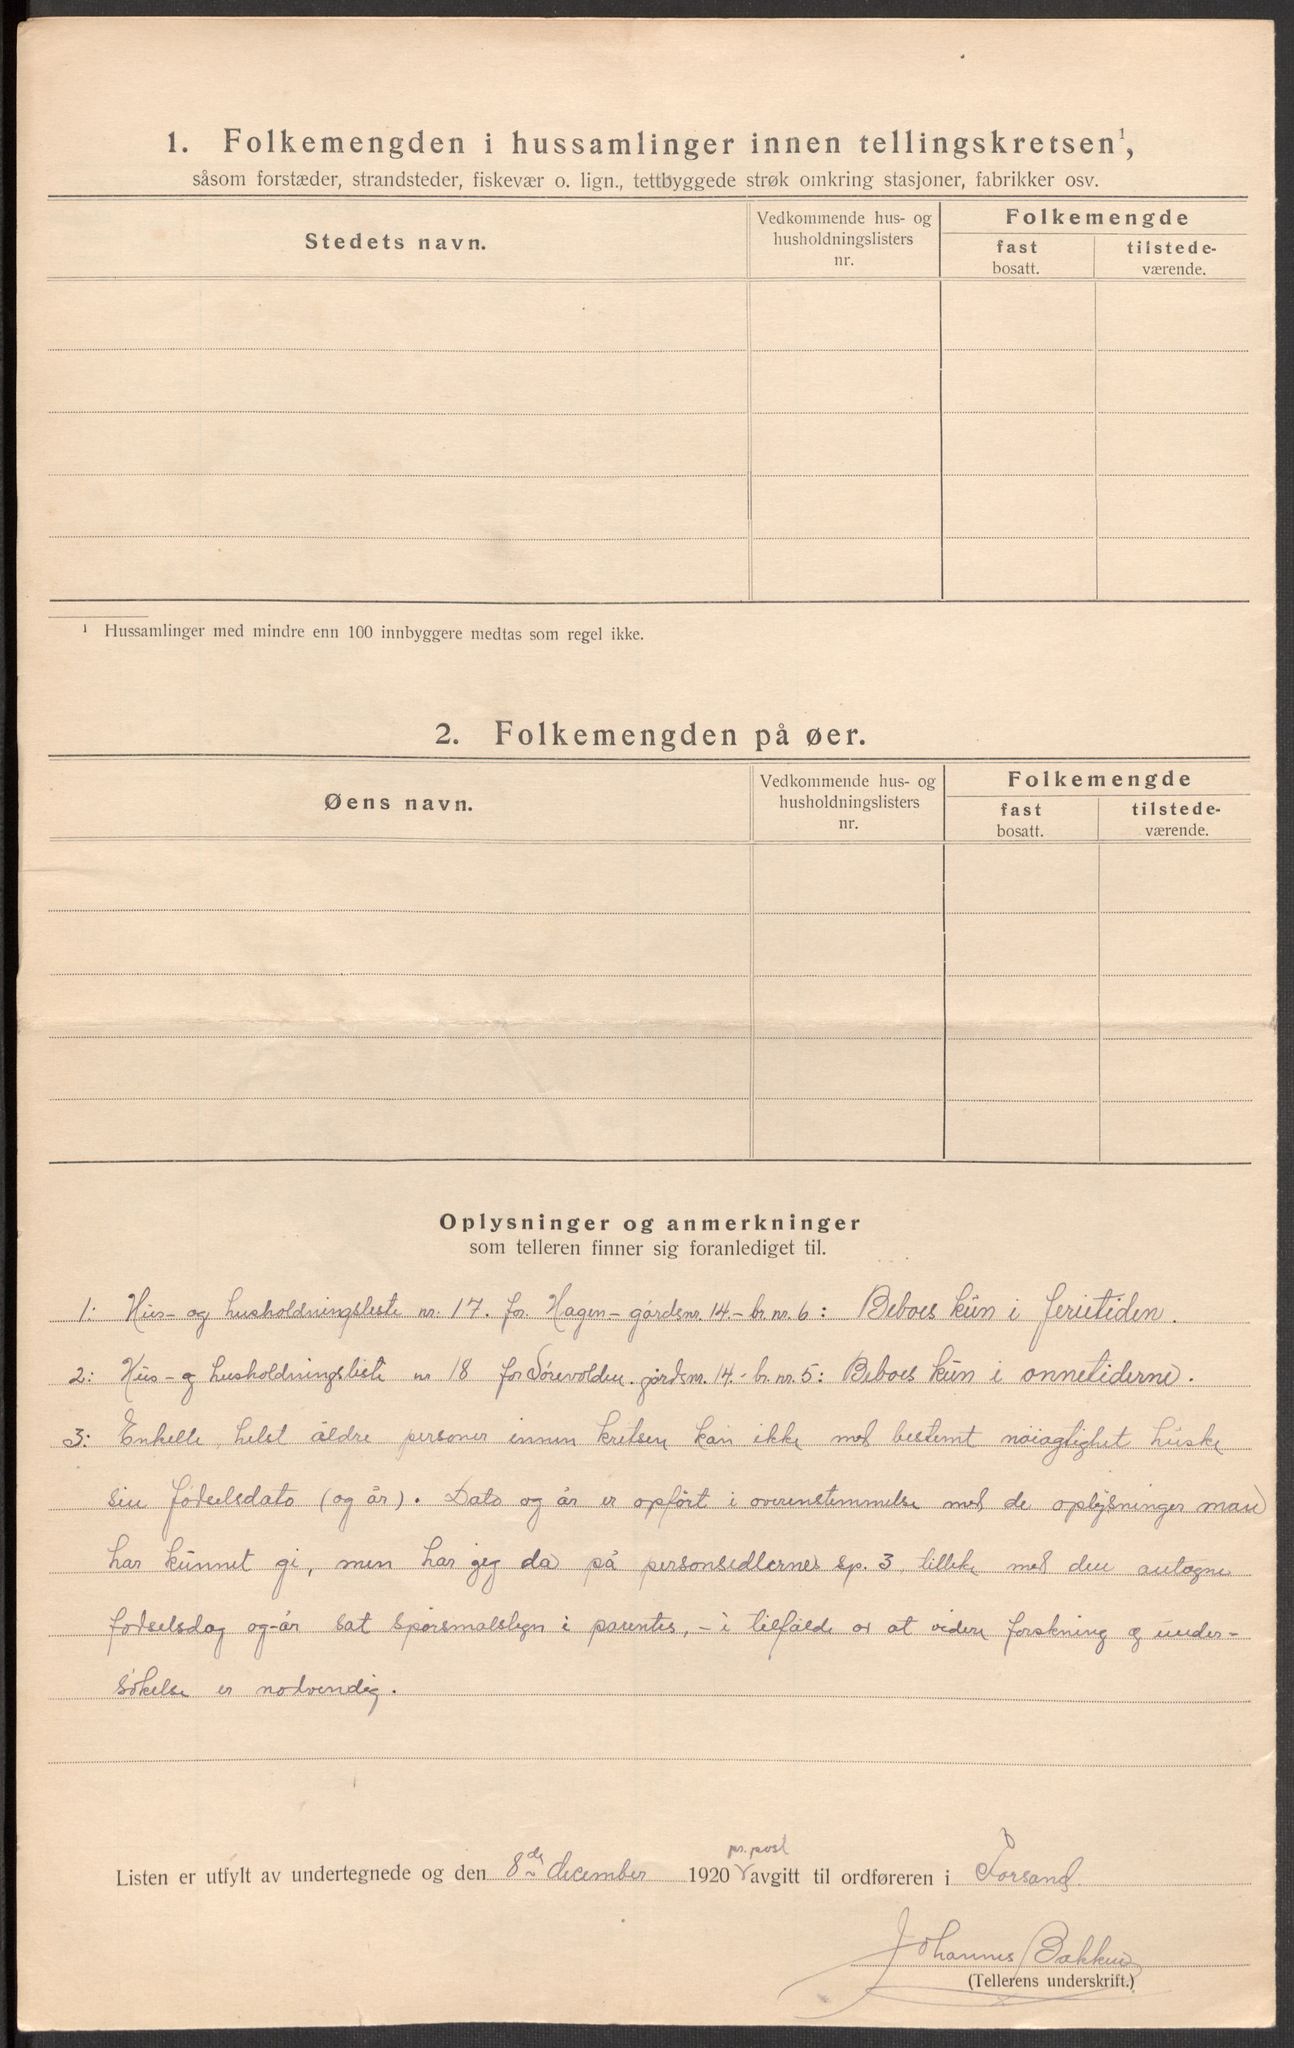 1. Folkemengden i hussamlinger innen tellingskretsen¹,
såsom forstæder, strandsteder, fiskevær o. lign., tettbyggede strøk omkring stasjoner, fabrikker osv.
Stedets navn.
Vedkommende hus- og
husholdningslisters
nr.
Folkemengde
fast
bosatt.
tilstede-
værende.
¹ Hussamlinger med mindre enn 100 innbyggere medtas som regel ikke.
2. Folkemengden på øer.
Øens navn.
Vedkommende hus- og
husholdningslisters
nr.
Folkemengde
fast
bosatt.
tilstede-
værende.
Oplysninger og anmerkninger
som telleren finner sig foranlediget til.
1: Hus- og husholdningsliste nr. 17. for Hagen - gårdsnr. 14 - br. nr. 6: Beboes kun i ferietiden.
2: Hus- og husholdningsliste nr 18 for gårdsnr. 14.- br. nr. 5: Beboes kun i onnetiderne.
3: Enkelle, helst ældre personer innen kretsen kan ikke med bestemt nøiagtighet huske
sin fødselsdato (og år). Dato og år er opført i overenstemmelse med de oplysninger man
har kunnet gi, men har jeg da på personsedlernes sp. 3. tillike med den antagne
fødselsdag og -år sat spørsmalstegn i parentes, - i tilfælde av at videre forskning og under-
søkelse er nødvendig.
Listen er utfylt av undertegnede og den 8de december 1920 pr. post avgitt til ordføreren i Forsand.
Johannes Bakken
(Tellerens underskrift.)